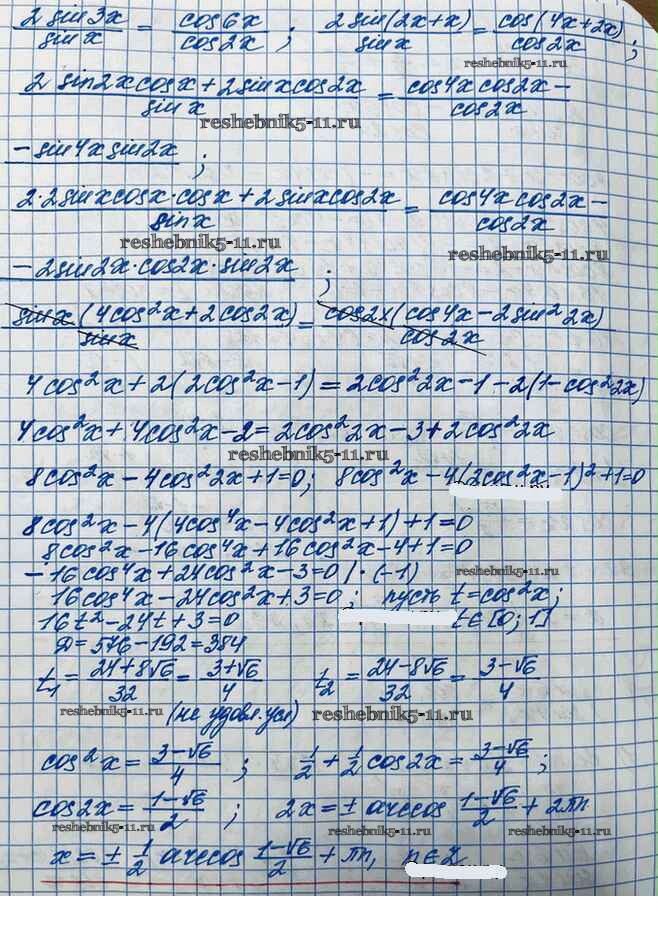 2 sin 3x / sin x = cos 6x / cos 2x ; 2 sin(2x+x) / sin x = cos(4x+2x) / cos 2x ;
reshebnik5-11.ru
2 sin 2x cos x + 2 sin x cos 2x / sin x = cos 4x cos 2x − / cos 2x
reshebnik5-11.ru
− sin 4x sin 2x ;
2·2 sin x cos x · cos x + 2 sin x cos 2x / sin x = cos 4x cos 2x − / cos 2x
reshebnik5-11.ru reshebnik5-11.ru
− 2 sin 2x · cos 2x · sin 2x ;
sin x (4cos²x + 2cos 2x) / sin x = cos 2x (cos 4x − 2 sin² 2x) / cos 2x
4cos²x + 2(2cos²x − 1) = 2cos²2x − 1 − 2(1 − cos²2x)
4cos²x + 4cos²x − 2 = 2cos²2x − 3 + 2cos²2x
reshebnik5-11.ru
8cos²x − 4cos²2x + 1 = 0; 8cos²x − 4(2cos²x − 1)² + 1 = 0
8cos²x − 4(4cos⁴x − 4cos²x + 1) + 1 = 0
8cos²x − 16cos⁴x + 16cos²x − 4 + 1 = 0
− 16cos⁴x + 24cos²x − 3 = 0 | · (−1)
reshebnik5-11.ru
16cos⁴x − 24cos²x + 3 = 0 ; пусть t = cos²x ;
16t² − 24t + 3 = 0 t ∈ [0; 1]
D = 576 − 192 = 384
t₁ = 24+8√6 / 32 = 3+√6 / 4 t₂ = 24−8√6 / 32 = 3−√6 / 4
reshebnik5-11.ru (не удовл. усл) reshebnik5-11.ru
cos²x = 3−√6 / 4 ; 1/2 + 1/2 cos 2x = 3−√6 / 4 ;
cos 2x = 1−√6 / 2 ; 2x = ± arccos 1−√6 / 2 + 2πn
reshebnik5-11.ru reshebnik5-11.ru reshebnik5-11.ru
x = ± 1/2 arccos 1−√6 / 2 + πn, n ∈ Z